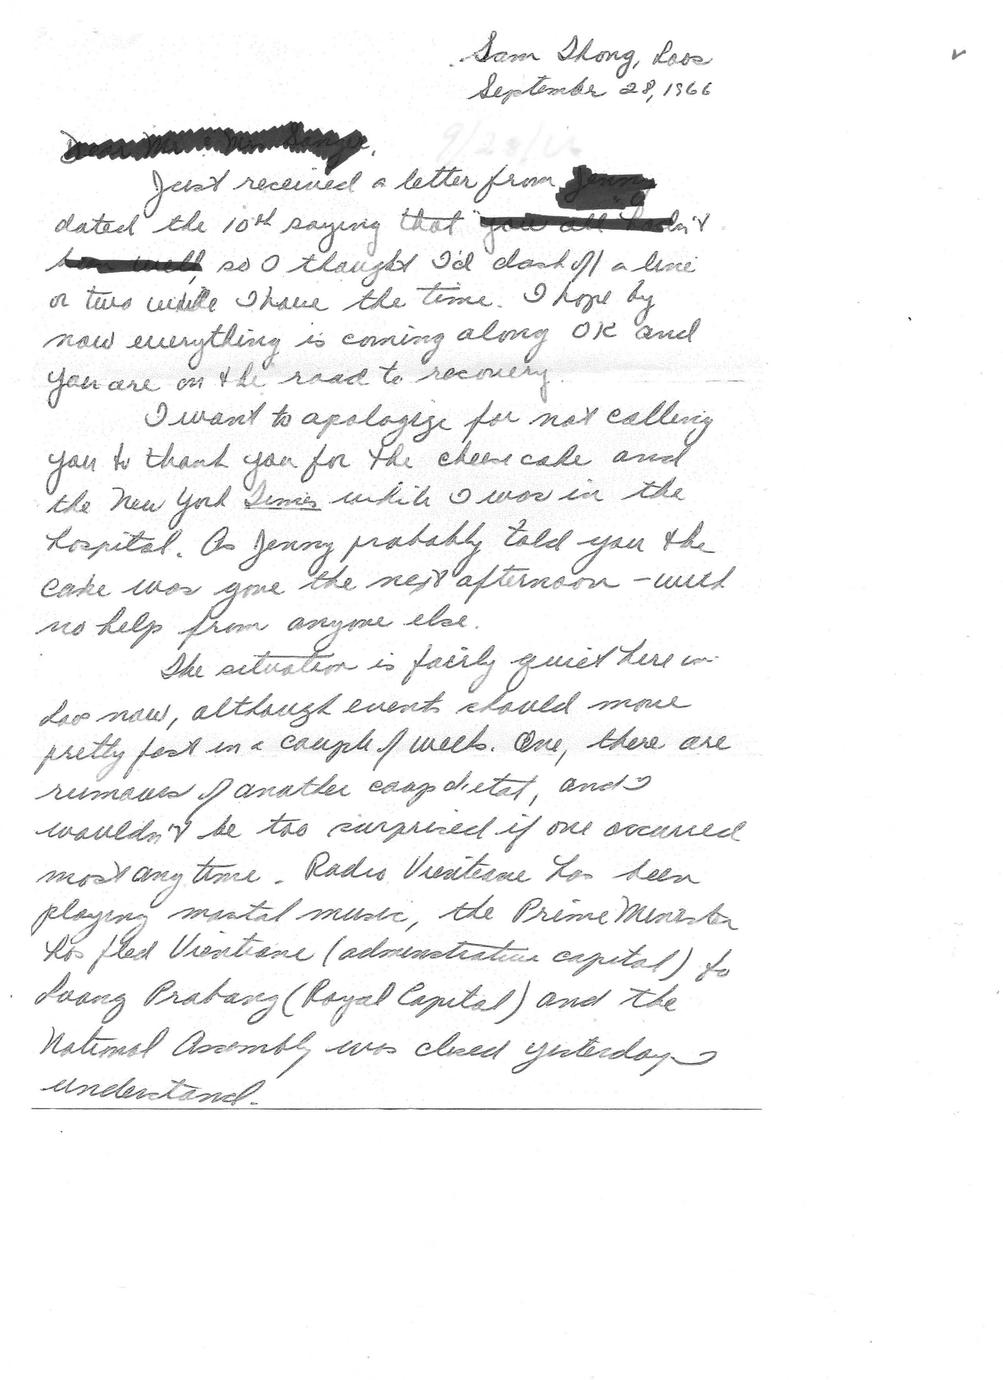 Sam Thong, Laos
September 28, 1966
9/28/66
Just received a letter from
dated the 10th saying that
so I thought I'd dash off a line
or two while I have the time. I hope by
now everything is coming along OK and
you are on the road to recovery.
I want to apologize for not calling
you to thank you for the cheese cake and
the New York Times while I was in the
hospital. As Jenny probably told you the
cake was gone the next afternoon – with
no help from anyone else.
The situation is fairly quiet here in
Laos now, although events should move
pretty fast in a couple of weeks. One, there are
rumours of another coup d'etat, and I
wouldn't be too surprised if one occurred
most any time. Radio Vientiane has been
playing martial music, the Prime Minister
has fled Vientiane (administrative capital) to
Luang Prabang (Royal Capital) and the
National Assembly was closed yesterday I
understand.